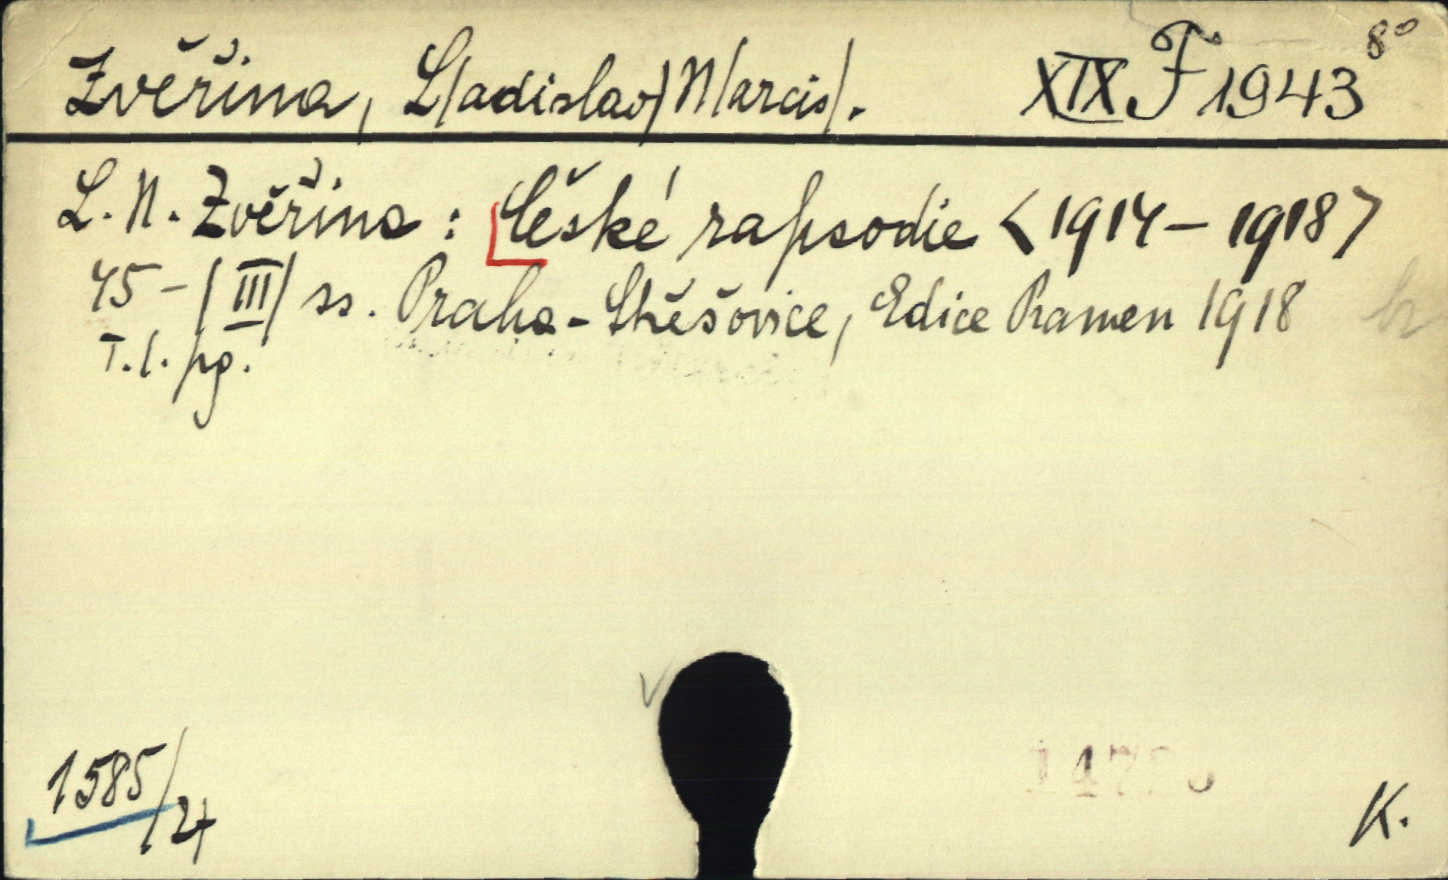 Zvěřina, L/adislav/ N/arcis/. XIX F 1943 8°
L. N. Zvěřina: České rapsodie <1914-1918>
45-/III/ ss. Praha-Střešovice, Edice Pramen 1918
T. l. pg.
1585/24
K.